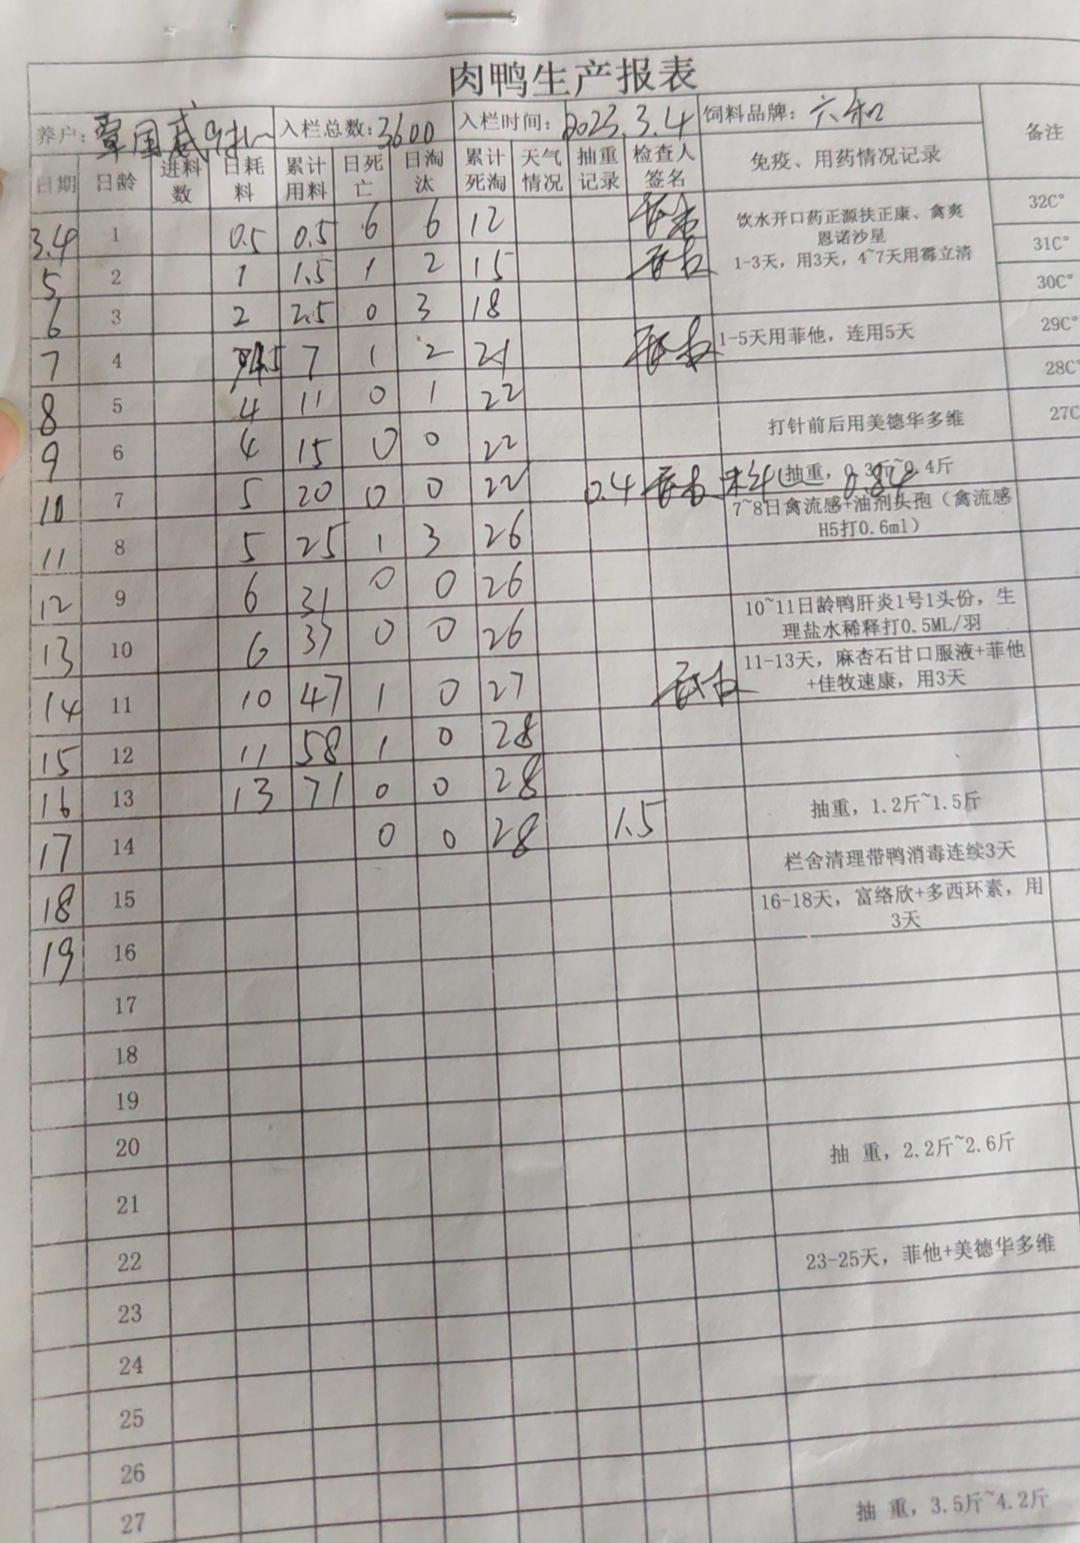 肉鸭生产报表
养户: 覃国威 入栏总数: 3600 入栏时间: 2023.3.4 饲料品牌: 六和 备注
日期 日龄 进料数 日耗料 累计用料 日死亡 日淘汰 累计死淘 天气情况 抽重记录 检查人签名 免疫、用药情况记录
3.4 1 0.5 0.5 6 6 12 饮水开口药正源扶正康、禽爽 32C°
恩诺沙星
5 2 1 1.5 1 2 15 1-3天，用3天，4~7天用霉立清 31C°
6 3 2 2.5 0 3 18 30C°
7 4 7 1 2 21 1-5天用菲他，连用5天 29C°
8 5 4 11 0 1 22 28C°
9 6 4 15 0 0 22 打针前后用美德华多维 27C
10 7 5 20 0 0 22 0.4 抽重，0.3斤~0.4斤
11 8 5 25 1 3 26 7~8日禽流感+油剂头孢（禽流感
H5打0.6ml）
12 9 6 31 0 0 26
13 10 6 37 0 0 26 10~11日龄鸭肝炎1号1头份，生
理盐水稀释打0.5ML/羽
14 11 10 47 1 0 27 11-13天，麻杏石甘口服液+菲他
+佳牧速康，用3天
15 12 11 58 1 0 28
16 13 13 71 0 0 28 抽重，1.2斤~1.5斤
17 14 0 0 28 1.5 栏舍清理带鸭消毒连续3天
18 15 16-18天，富络欣+多西环素，用
3天
19 16
17
18
19
20 抽 重，2.2斤~2.6斤
21
22 23-25天，菲他+美德华多维
23
24
25
26
27 抽 重，3.5斤~4.2斤